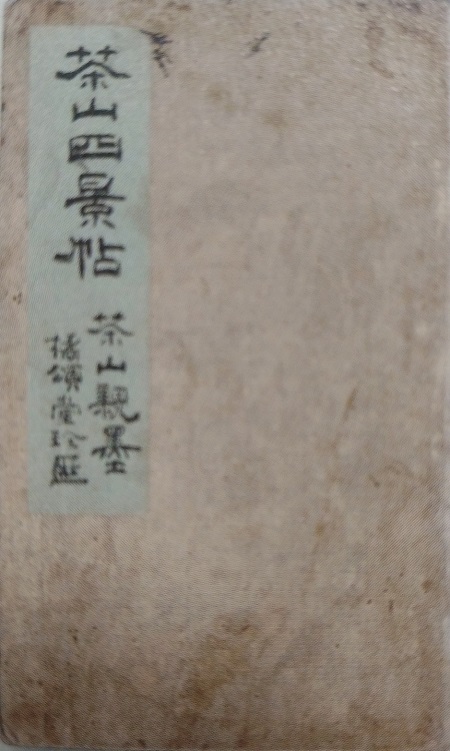 茶山四景帖
茶山親墨
橘頌堂珍匧